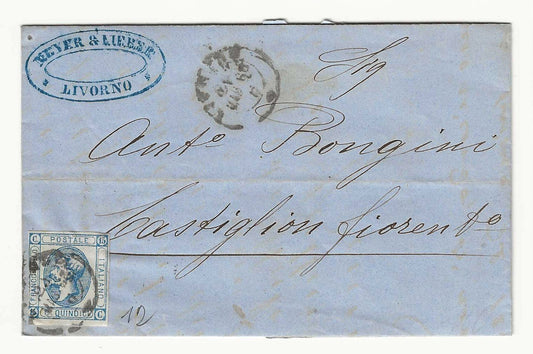 MEYER & LIEBER
LIVORNO
Sig
Anto Bongini
Castiglion fiorento
C. POSTALE 15
FRANCO BOLLO
ITALIANO
QUINDICI C
12